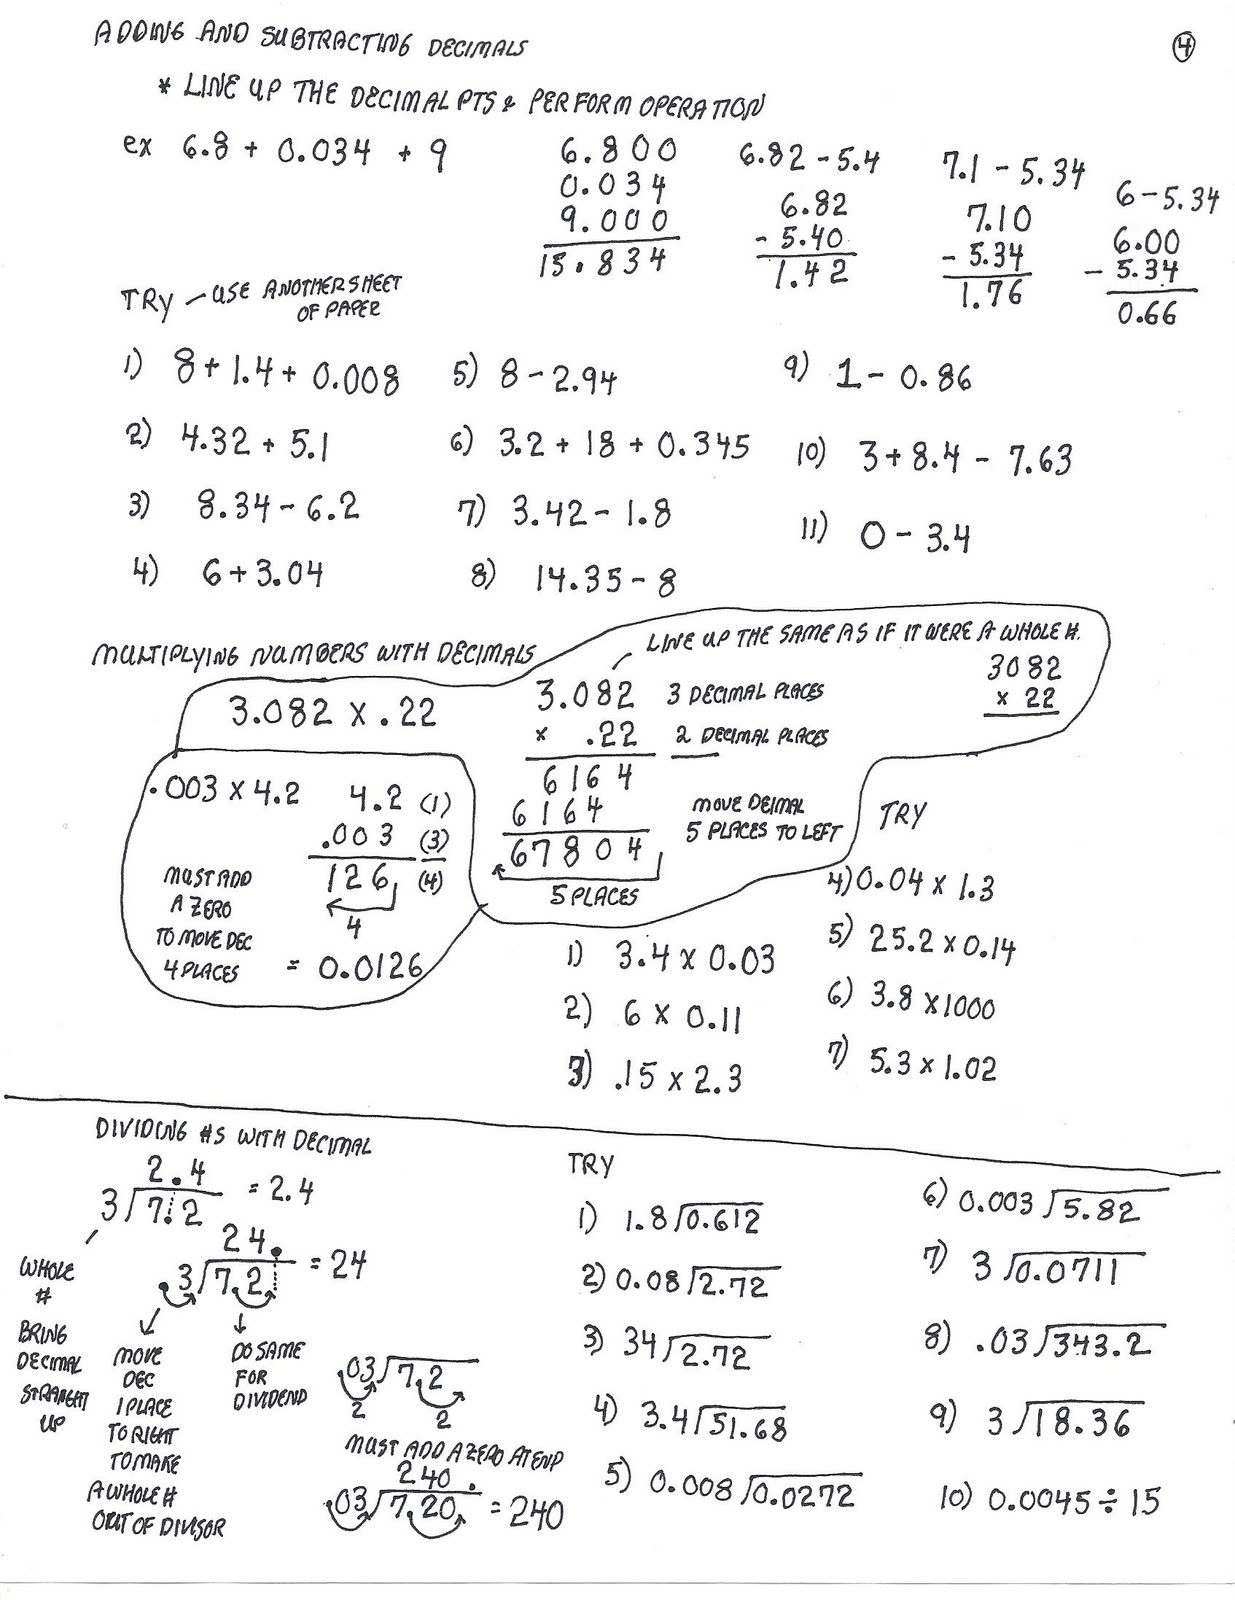 ADDING AND SUBTRACTING DECIMALS
4
* LINE UP THE DECIMAL PTS & PERFORM OPERATION
ex 6.8 + 0.034 + 9
6.800
0.034
9.000
15.834
6.82 - 5.4
6.82
- 5.40
1.42
7.1 - 5.34
7.10
- 5.34
1.76
6 - 5.34
6.00
- 5.34
0.66
TRY - USE ANOTHER SHEET
OF PAPER
1) 8 + 1.4 + 0.008
2) 4.32 + 5.1
3) 8.34 - 6.2
4) 6 + 3.04
5) 8 - 2.94
6) 3.2 + 18 + 0.345
7) 3.42 - 1.8
8) 14.35 - 8
9) 1 - 0.86
10) 3 + 8.4 - 7.63
11) 0 - 3.4
MULTIPLYING NUMBERS WITH DECIMALS
LINE UP THE SAME AS IF IT WERE A WHOLE #.
3.082 x .22
3.082 3 DECIMAL PLACES
x .22 2 DECIMAL PLACES
6164
6164
67804
5 PLACES
MOVE DEIMAL
5 PLACES TO LEFT
3082
x 22
.003 x 4.2
4.2 (1)
.003 (3)
126 (4)
4
MUST ADD
A ZERO
TO MOVE DEC
4 PLACES = 0.0126
TRY
1) 3.4 x 0.03
2) 6 x 0.11
3) .15 x 2.3
4) 0.04 x 1.3
5) 25.2 x 0.14
6) 3.8 x 1000
7) 5.3 x 1.02
DIVIDING #S WITH DECIMAL
2.4
3√7.2 = 2.4
24.
.3√7.2 = 24
WHOLE
#
BRING
DECIMAL
STRAIGHT
UP
MOVE
DEC
1 PLACE
TO RIGHT
TO MAKE
A WHOLE #
OUT OF DIVISOR
DO SAME
FOR
DIVIDEND
.03√7.2
2 2
MUST ADD A ZERO AT END
240.
.03√7.20 = 240
TRY
1) 1.8√0.612
2) 0.08√2.72
3) 34√2.72
4) 3.4√51.68
5) 0.008√0.0272
6) 0.003√5.82
7) 3√0.0711
8) .03√343.2
9) 3√18.36
10) 0.0045 ÷ 15